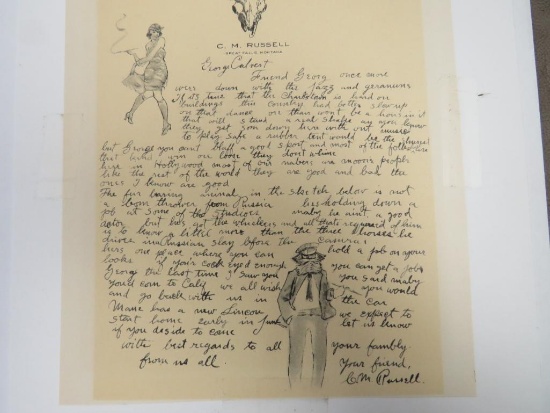 C. M. RUSSELL
GREAT FALLS, MONTANA
George Calvert
Friend George once more
down with the Jazz and geraniums
If its true that the Charleston is hard on
buildings this country had better slow up
on that dance or thar wont be a house in it
that will stand a real
they get down here with out
to play safe a rubber tent would be the
but George you cant bluff a good sport and most of the folks
that wind up on loose they dont whine
here in Hollywood most of our nabers are moovie people
like the rest of the world they are good and bad the
ones I know are good
The fur baring animal in the sketch below is not
a bom thrower from Russia hes holding down a
job at some of the studioes maby he aint a good
actor but hes got the whiskers and all thats required of him
is to know a little more than the three horses he
drives in Russian slay before the camera
hers one place where you can hold a job on your
looks if your cock eyed enough you can get a job
George the last time I saw you you said maby
you'd come to Cal we all wish you would
and go back with us in the car
Mame has a new Lincon we expect to
start home early in June let us know
if you deside to come
with best regards to all your fambly
from us all. Your friend,
C M Russell.